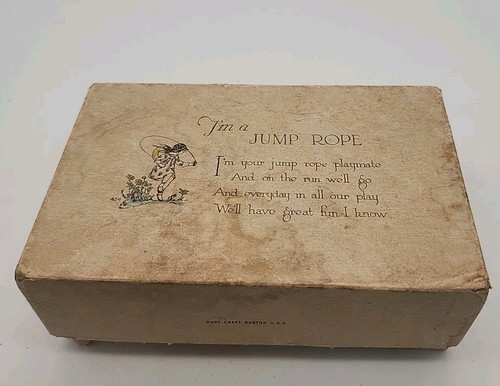 I'm a
JUMP ROPE
I'm your jump rope playmate
And on the run we'll go
And everyday in all our play
We'll have great fun I know
CRAFT BOSTON U.S.A.